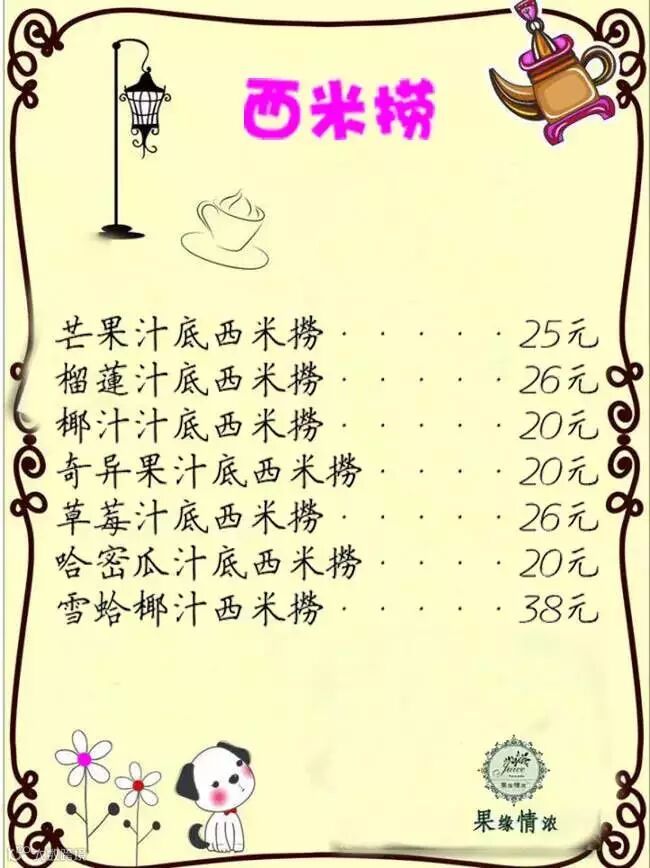 西米捞
芒果汁底西米撈 · · · · · 25元
榴蓮汁底西米撈 · · · · · 26元
椰汁汁底西米撈 · · · · · 20元
奇异果汁底西米撈 · · · · 20元
草莓汁底西米撈 · · · · · 26元
哈密瓜汁底西米撈 · · · · 20元
雪蛤椰汁西米撈 · · · · · 38元
Juice
果缘情浓
果缘情浓
大数跨境